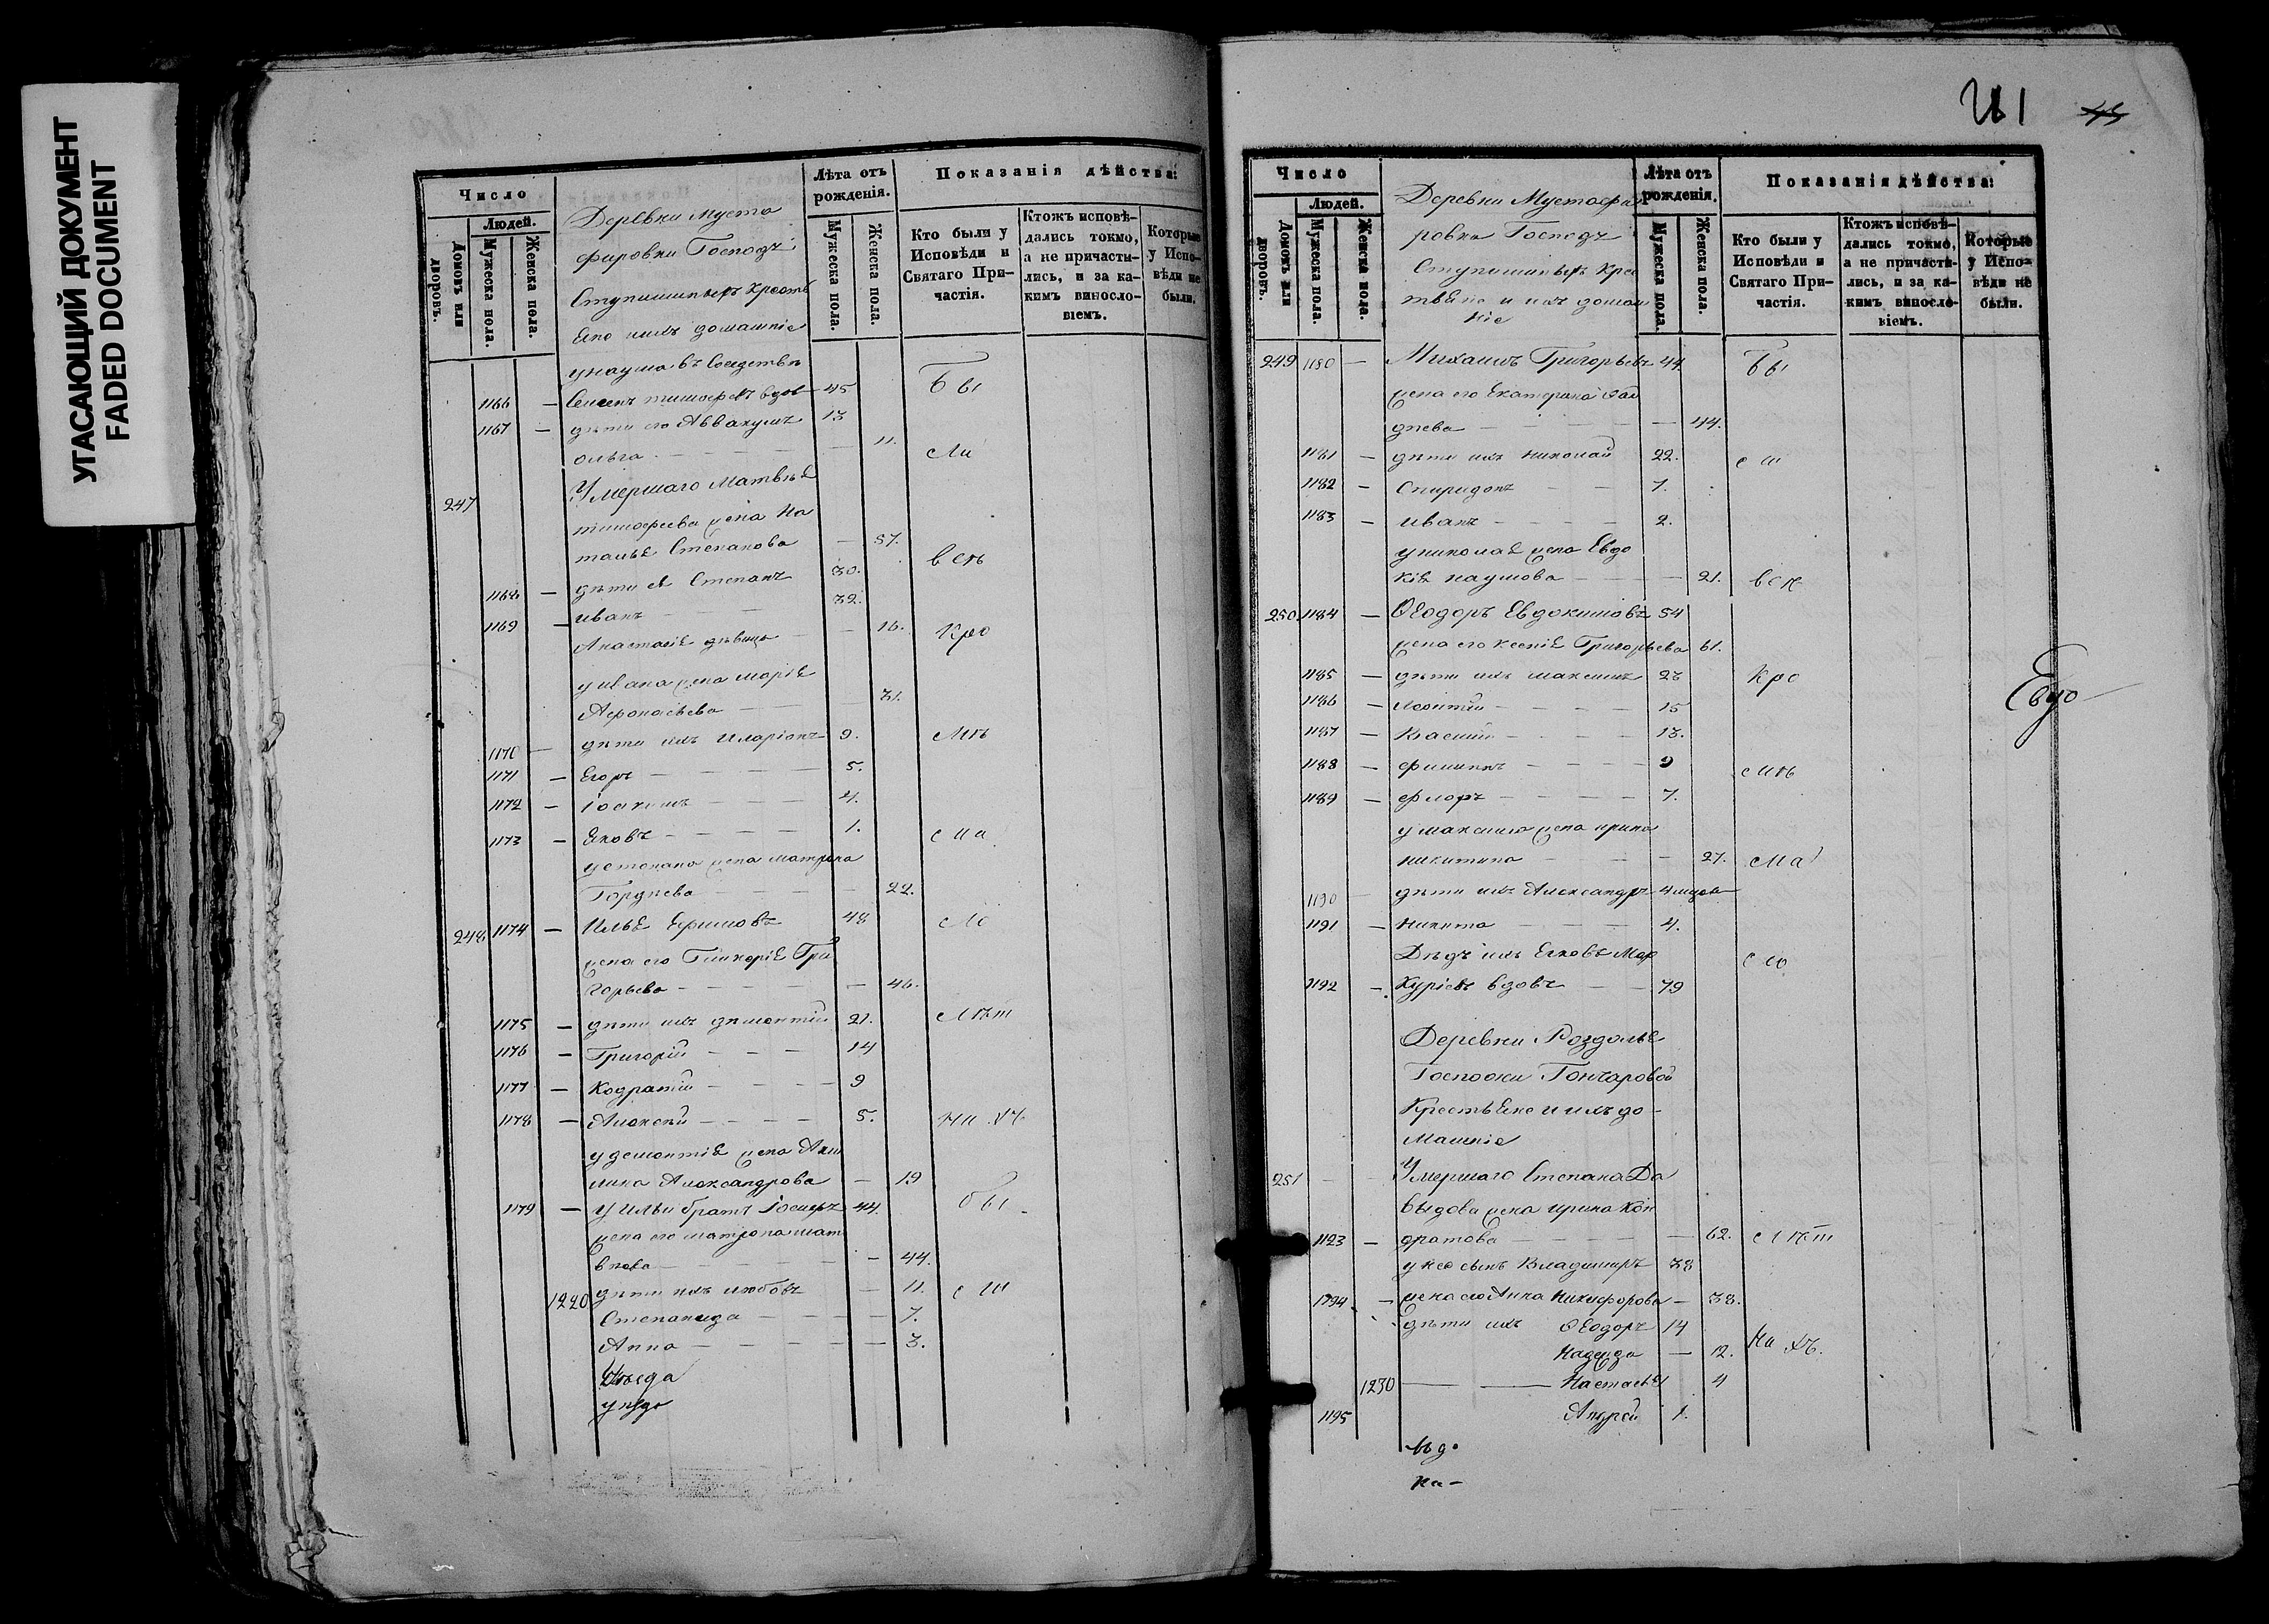 УГАСАЮЩИЙ ДОКУМЕНТ
FADED DOCUMENT
Число
Людей.
Домовъ или дворовъ.
Мужеска пола.
Женска пола.
Деревни Муста
фировки Господъ
Ступишиныхъ крестьЯ
Яне ихъ домашніе
Лѣта отъ рожденія.
Мужеска пола.
Женска пола.
Показанія дѣйства:
Кто были у Исповѣди и Святаго При-частія.
Ктожъ исповѣ-дались токмо, а не причасти-лись, и за ка-кимъ винословіемъ.
Которые у Испо-вѣди не были.
у наума въ соседствѣ
1166 — Семенъ тимофеевъ вдов 45 Бы
1167 — дѣти его Аввакумъ 13
ольга — 11. Ли
247 Умершаго Матвѣя
тимофеева жена На
талья Степанова — 57. всѣ
1168 — дѣти ея Степанъ 30.
1169 — иванъ 32.
Анастасія дѣвица — 16. Кро
у ивана жена марія
Афонасьева — 31.
1170 — дѣти ихъ иларіонъ 9. Мѣ
1171 — Егоръ — 5.
1172 — іоакимъ — 4.
1173 — Яковъ — 1. сма
у степана жена матрона
Гордѣева — 22.
248 1174 — Илья Ефимовъ 48 Мо
жена его Гликерія Гри
горьева — 46.
1175 — дѣти ихъ дѣментій 21. Лѣт
1176 — Григорій — 14
1177 — Кодратій — 9
1178 — Алексѣй — 5.
у дементія жена Аку
лина Александрова — 19
1179 — у ильи братъ іосифъ 44. бы
жена его матрона мат
вѣева — 44.
1220 дѣти ихъ любовь — 11. сш
Степанида — 7.
Анна — 3.
281 45
Число
Людей.
Домовъ или дворовъ.
Мужеска пола.
Женска пола.
Деревни Мустафи
ровки Господъ
Ступишиныхъ Крес
тьяне и ихъ домаш
ніе
Лѣта отъ рожденія.
Мужеска пола.
Женска пола.
Показанія дѣйства:
Кто были у Исповѣди и Святаго При-частія.
Ктожъ исповѣ-дались токмо, а не причасти-лись, и за ка-кимъ винословіемъ.
Которые у Испо-вѣди не были.
249 1180 — Михаилъ Григорьевъ 44 Бы
жена его Екатерина Фад
дѣева — 44.
1181 — дѣти ихъ николай 22. сш
1182 — Спиридонъ — 7.
1183 — иванъ — 2.
у николая жена Евдо
кія наумова — 21. все
250 1184 — Ѳеодоръ Евдокимовъ 54
жена его ксенія Григорьева 61.
1185 — дѣти ихъ максимъ 23 Кро
1186 — Леонтій — 15
1187 — Василій — 13.
1188 — филиппъ — 9 смѣ
1189 — флоръ — 7.
у максима жена ирина
никитина — 27. Ма
1190 — дѣти ихъ Александръ 4
1191 — Никита — 4.
Дѣдъ ихъ Яковъ Мер
1192 — Куріевъ вдовъ — 79
Евдо
Деревни Роздолья
Госпожи Гончаровой
Крестьяне и ихъ до-
машніе
251 Умершаго Степана Да
выдова жена ирина Кон
1193 — дратова — 62.
у нее сынъ Владимиръ 38
1194 — жена его Анна Никифорова — 38.
дѣти ихъ Ѳеодоръ 14
Надежда — 12.
1230 — Настасья 4
1195 Андрей 1.